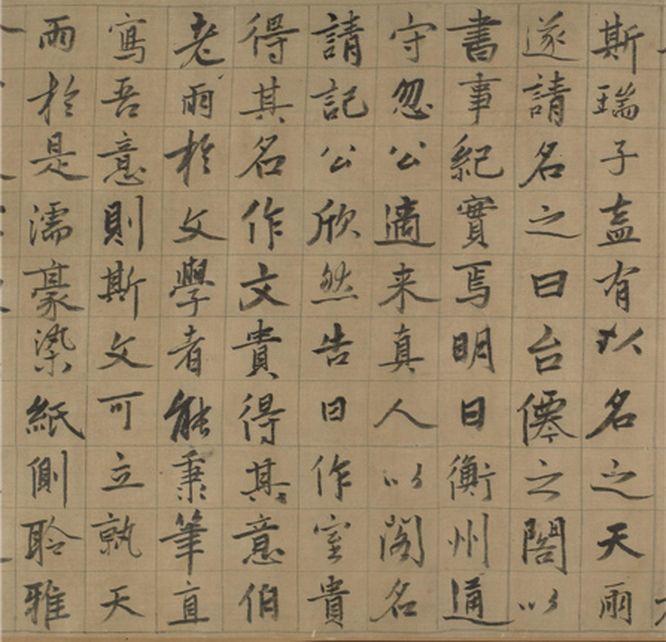 斯瑞子盍有以名之天雨
遂請名之曰台僊之閣以
書事紀實焉明日衡州通
守忽公適来真人以閣名
請記公欣然告曰作室貴
得其名作文貴得其意伯
老雨於文學者能秉筆直
寫吾意則斯文可立就天
雨於是濡豪染紙側聆雅